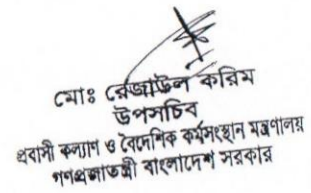 মোঃ রেজাউল করিম
উপসচিব
প্রবাসী কল্যাণ ও বৈদেশিক কর্মসংস্থান মন্ত্রণালয়
গণপ্রজাতন্ত্রী বাংলাদেশ সরকার